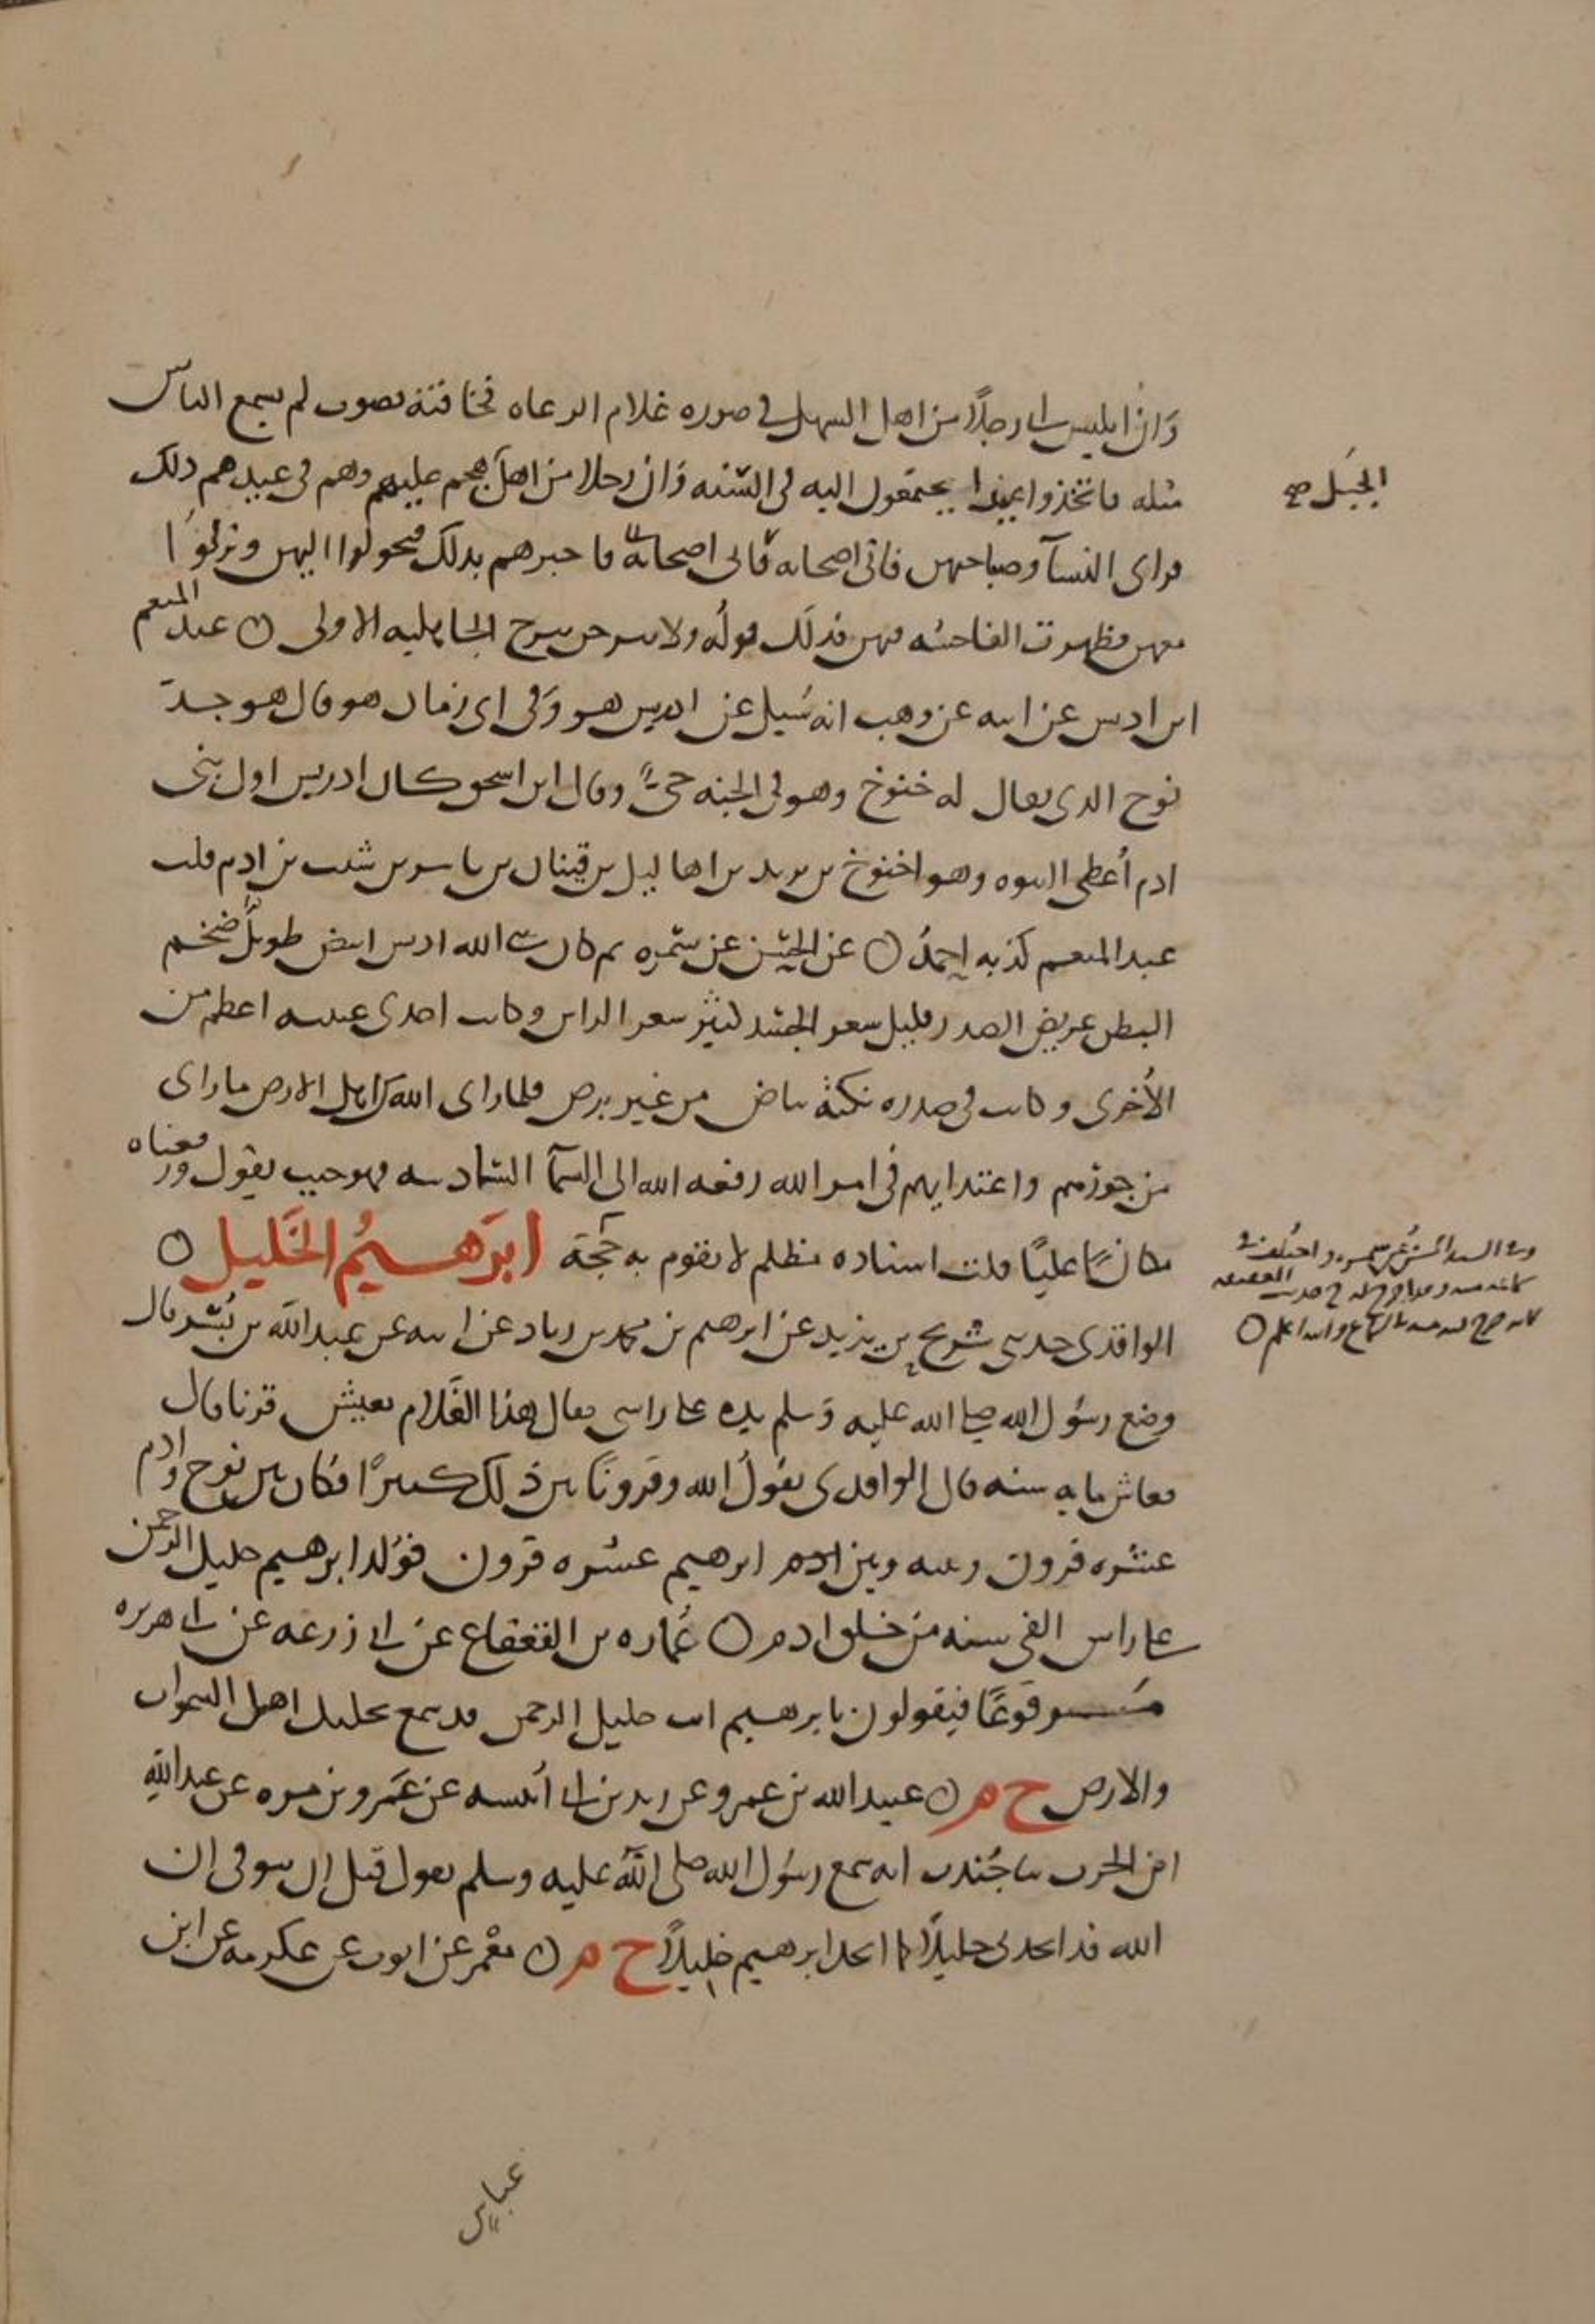 وَان ابليس اتى رجلاً من اهل السهل في صوره غلام الرعاه فجا فيه بصوت لم يسمع الناس
مثله فاتخذوا عيدا يجتمعون اليه في السنه وَان رجلا من اهل هجم عليهم وهم في عيدهم ذلك
الجَبَل صح
فراى النسآ وصباحتهن فاتى اصحابه فاخبرهم بذلك فتحولوا اليهن ونزلوُا
معهن فظهرت الفاحشه فيهن فذلك قولُه ولا تبرجن تبرج الجاهليه الاولى ○ عبد المنعم
ابن ادريس عن ابيه عن وهب انه سُيل عن ادريس هو وَفي اي زمان هو قال هو جد
نوح الذي يقال له خنوخ وهو في الجنه حيٌّ وقال ابن اسحق كان ادريس اول بني
ادم اُعطي النبوه وهو اخنوخ بن يرد بن اهاليل بن قينان بن يانش بن شيث بن ادم قلت
عبد المنعم كذبه احمدُ ○ عن الحسَن عن سمُره ثم كان نبي الله ادريس ابيض طويلٌ ضخم
البطن عريض الصدر قليل شعر الجسَد كثيرُ شعر الراس وكانت احدى عينيه اعظم من
الاُخرى وكانت في صدره نكتهُ بياض من غير برص فلما راى الله من اهل الارض ما راى
من جورهم واعتدايهم في امر الله رفعه الله الى السمآ السادسه فهو حيث يقول ورفعناه
مكانًا عليًا قلت اسناده مظلم لا تقوم به حُجة ابرَهيمُ الخَليل ○
الواقدى حدثنى شريح بن يزيد عن ابرهيم بن محمد بن زياد عن ابيه عن عبد الله بن بُسْر قال
وضع رسُول الله صلى الله عليه وَسلم يده على راسى فقال هذا الغُلام يعيش قرنا قال
فعاش مايه سنه قال الواقدى يقولُ الله وقرونًا بين ذلك كثيرًا فكان بين نوح وادم
عشره قرون وبينه وبين ابرهيم عشره قرون فوُلد ابرهيم خليل الرحمن
على راس الفي سنه من خلق ادم ○ عُماره بن القعقاع عن ابي زرعه عن ابي هريره
مَرفوعًا فيقولون يابرهيم انت خليل الرحمن قد سمع بخلتك اهل السموات
والارض خ م ○ عبيد الله بن عمرو عن زيد بن ابي اُنيسه عن عَمرو بن مره عن عبد الله
ابن الحرث ثنا جُندب انه سمع رسُول الله صلى الله عليه وسلم يقول قبل ان يتوفى ان
الله قد اتخذني خليلاً كما اتخذ ابرهيم خليلاً خ م ○ مَعْمر عن ايوب عن عكرمه عن ابن
عباس